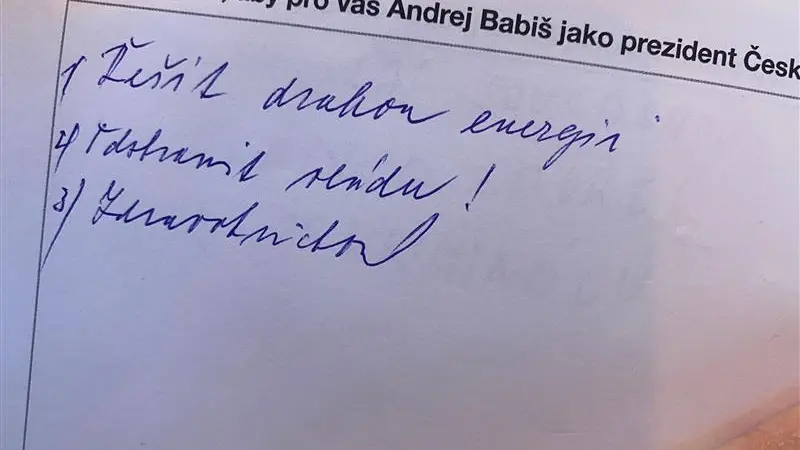 aby pro Vás Andrej Babiš jako prezident Česk
1) Řešit drahou energii
2) Odstranit vládu!
3) Zdravotnictvo